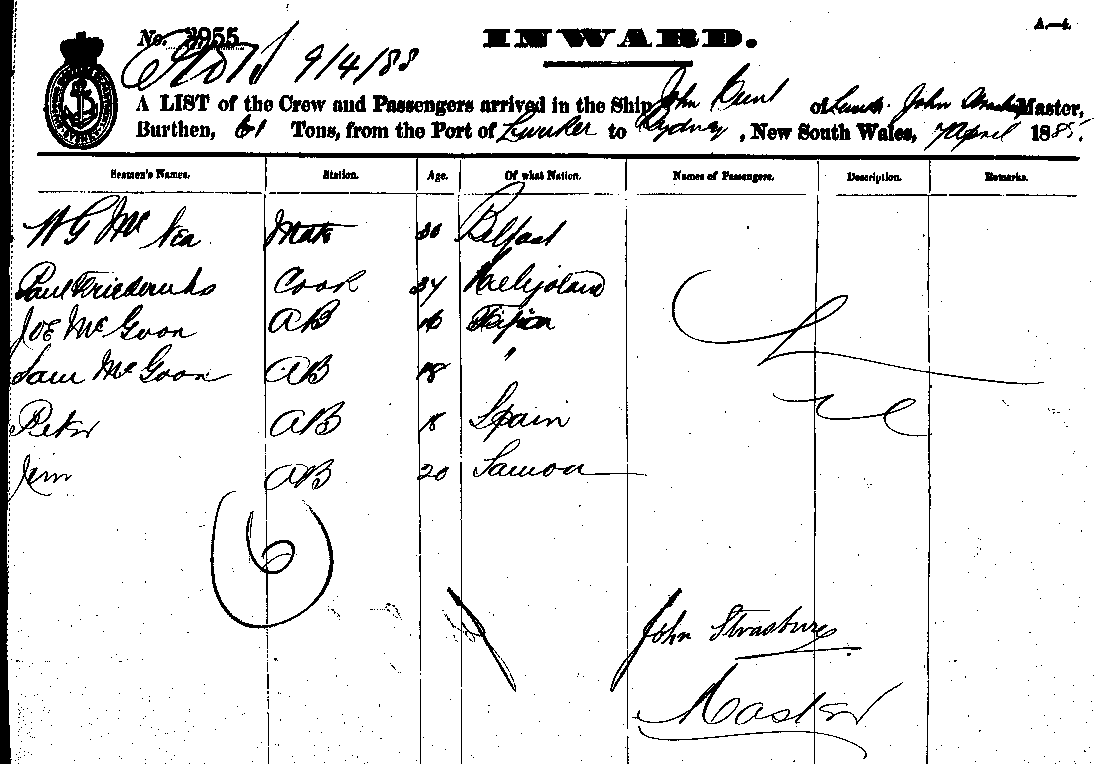 A.—4.
No. 3955 INWARD.
9/4/88
A LIST of the Crew and Passengers arrived in the Ship John Hunt of John Master,
Burthen, 61 Tons, from the Port of to Sydney, New South Wales, 7 April 188
Seamen's Names. Station. Age. Of what Nation. Names of Passengers. Description. Remarks.
W G Mc Nea Mate 30 Belfast
Paul Friedericks Cook 24 Helijoland
Joe McGoon AB 16
Sam McGoon AB 18 "
Peter AB 18 Spain
Jim AB 20 Samoa
6
John Strasburg
Master